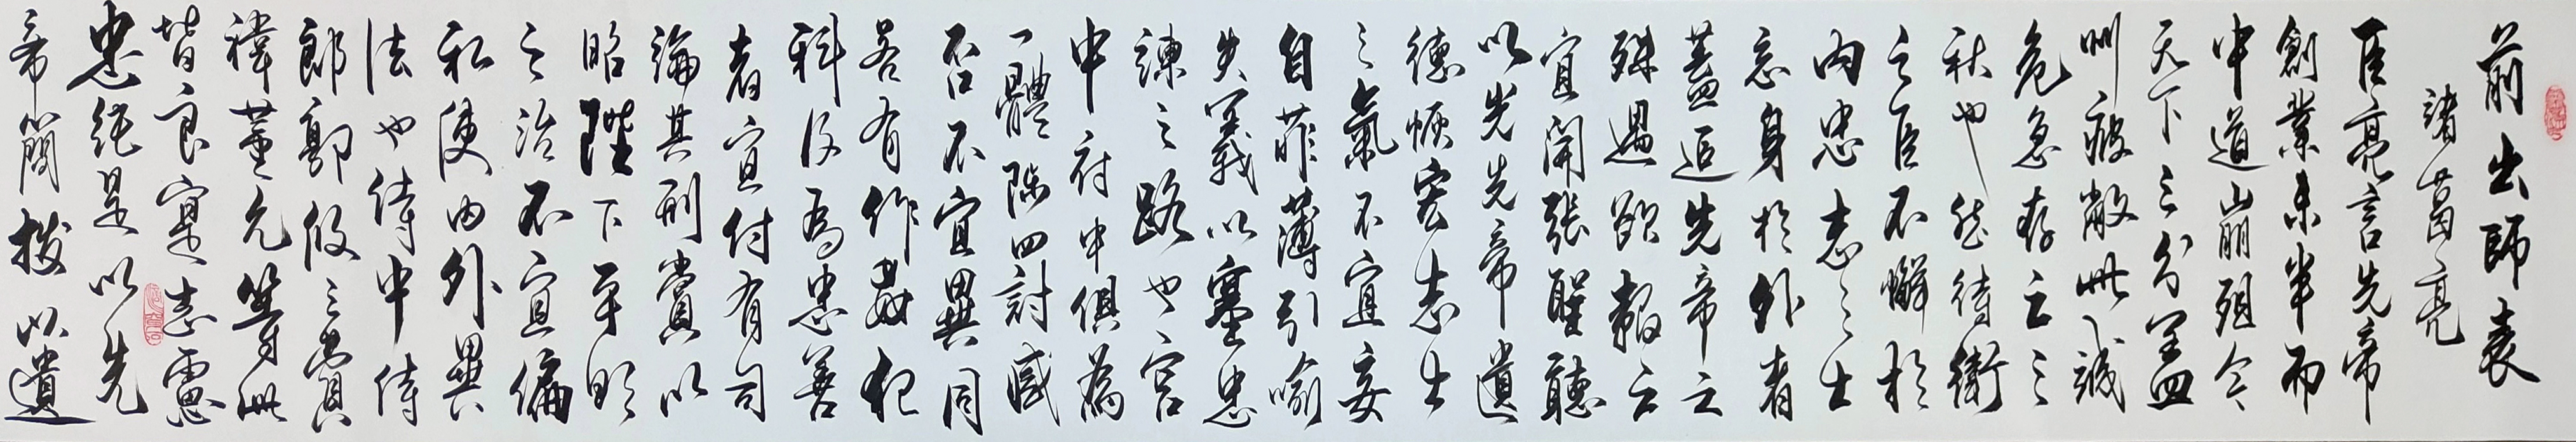 前出師表
諸葛亮
臣亮言先帝
創業未半而
中道崩殂今
天下三分益
州疲敝此誠
危急存亡之
秋也然侍衛
之臣不懈於
内忠志之士
忘身於外者
蓋追先帝之
殊遇欲報之
宜開張聖聽
以光先帝遺
德恢宏志士
之氣不宜妄
自菲薄引喻
失義以塞忠
諫之路也宮
中府中俱為
一體陟罰臧
否不宜異同
若有作姦犯
科及為忠善
者宜付有司
論其刑賞以
昭陛下平明
之治不宜偏
私使内外異
法也侍中侍
郎郭攸之費
禕董允等此
皆良實志慮
忠純是以先
帝簡拔以遺